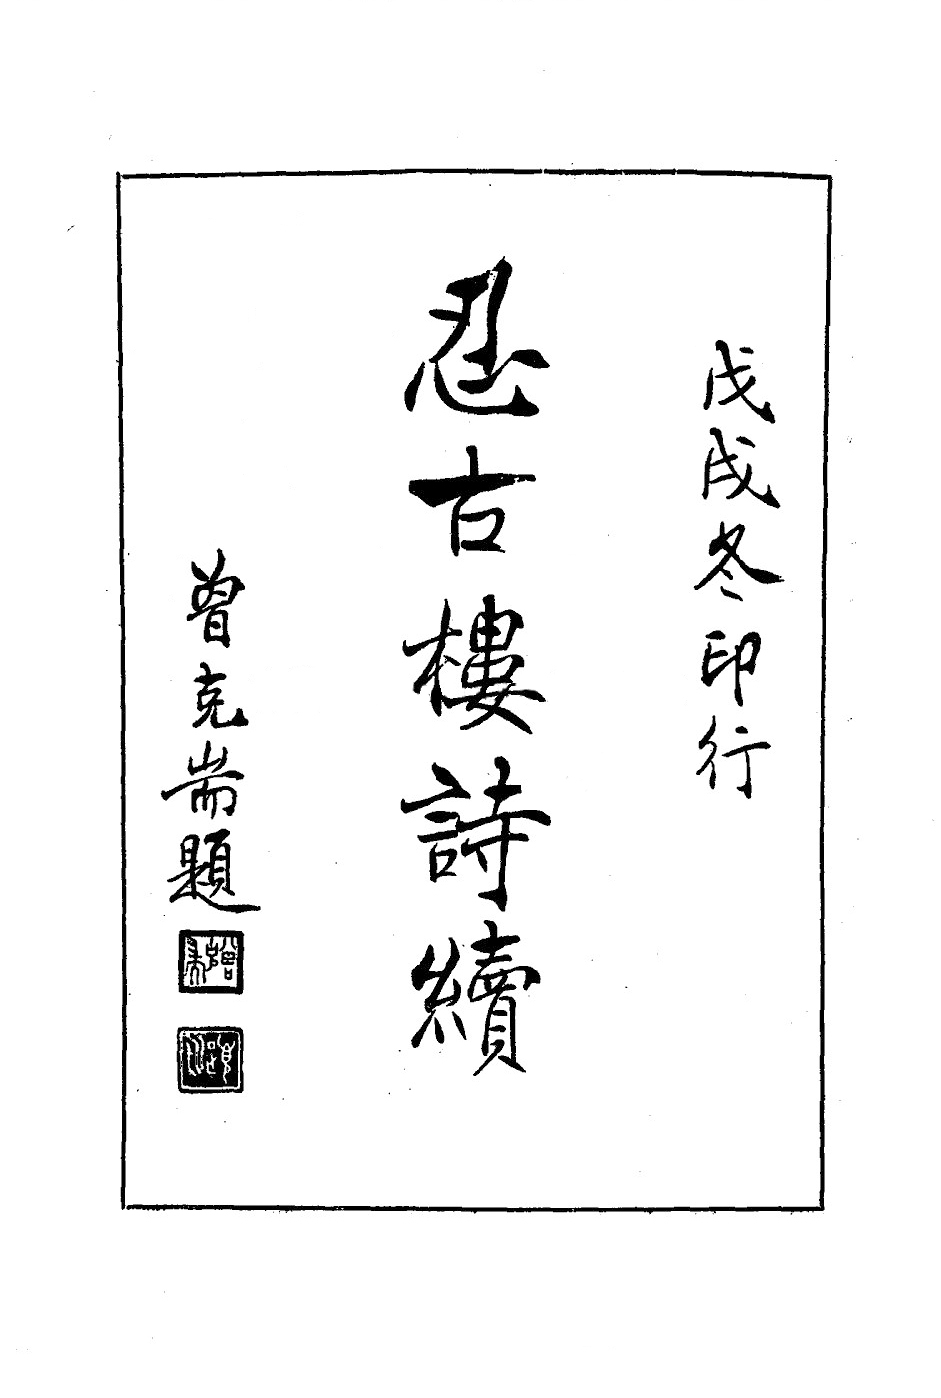 戊戌冬印行
忍古樓詩續
曾克耑題